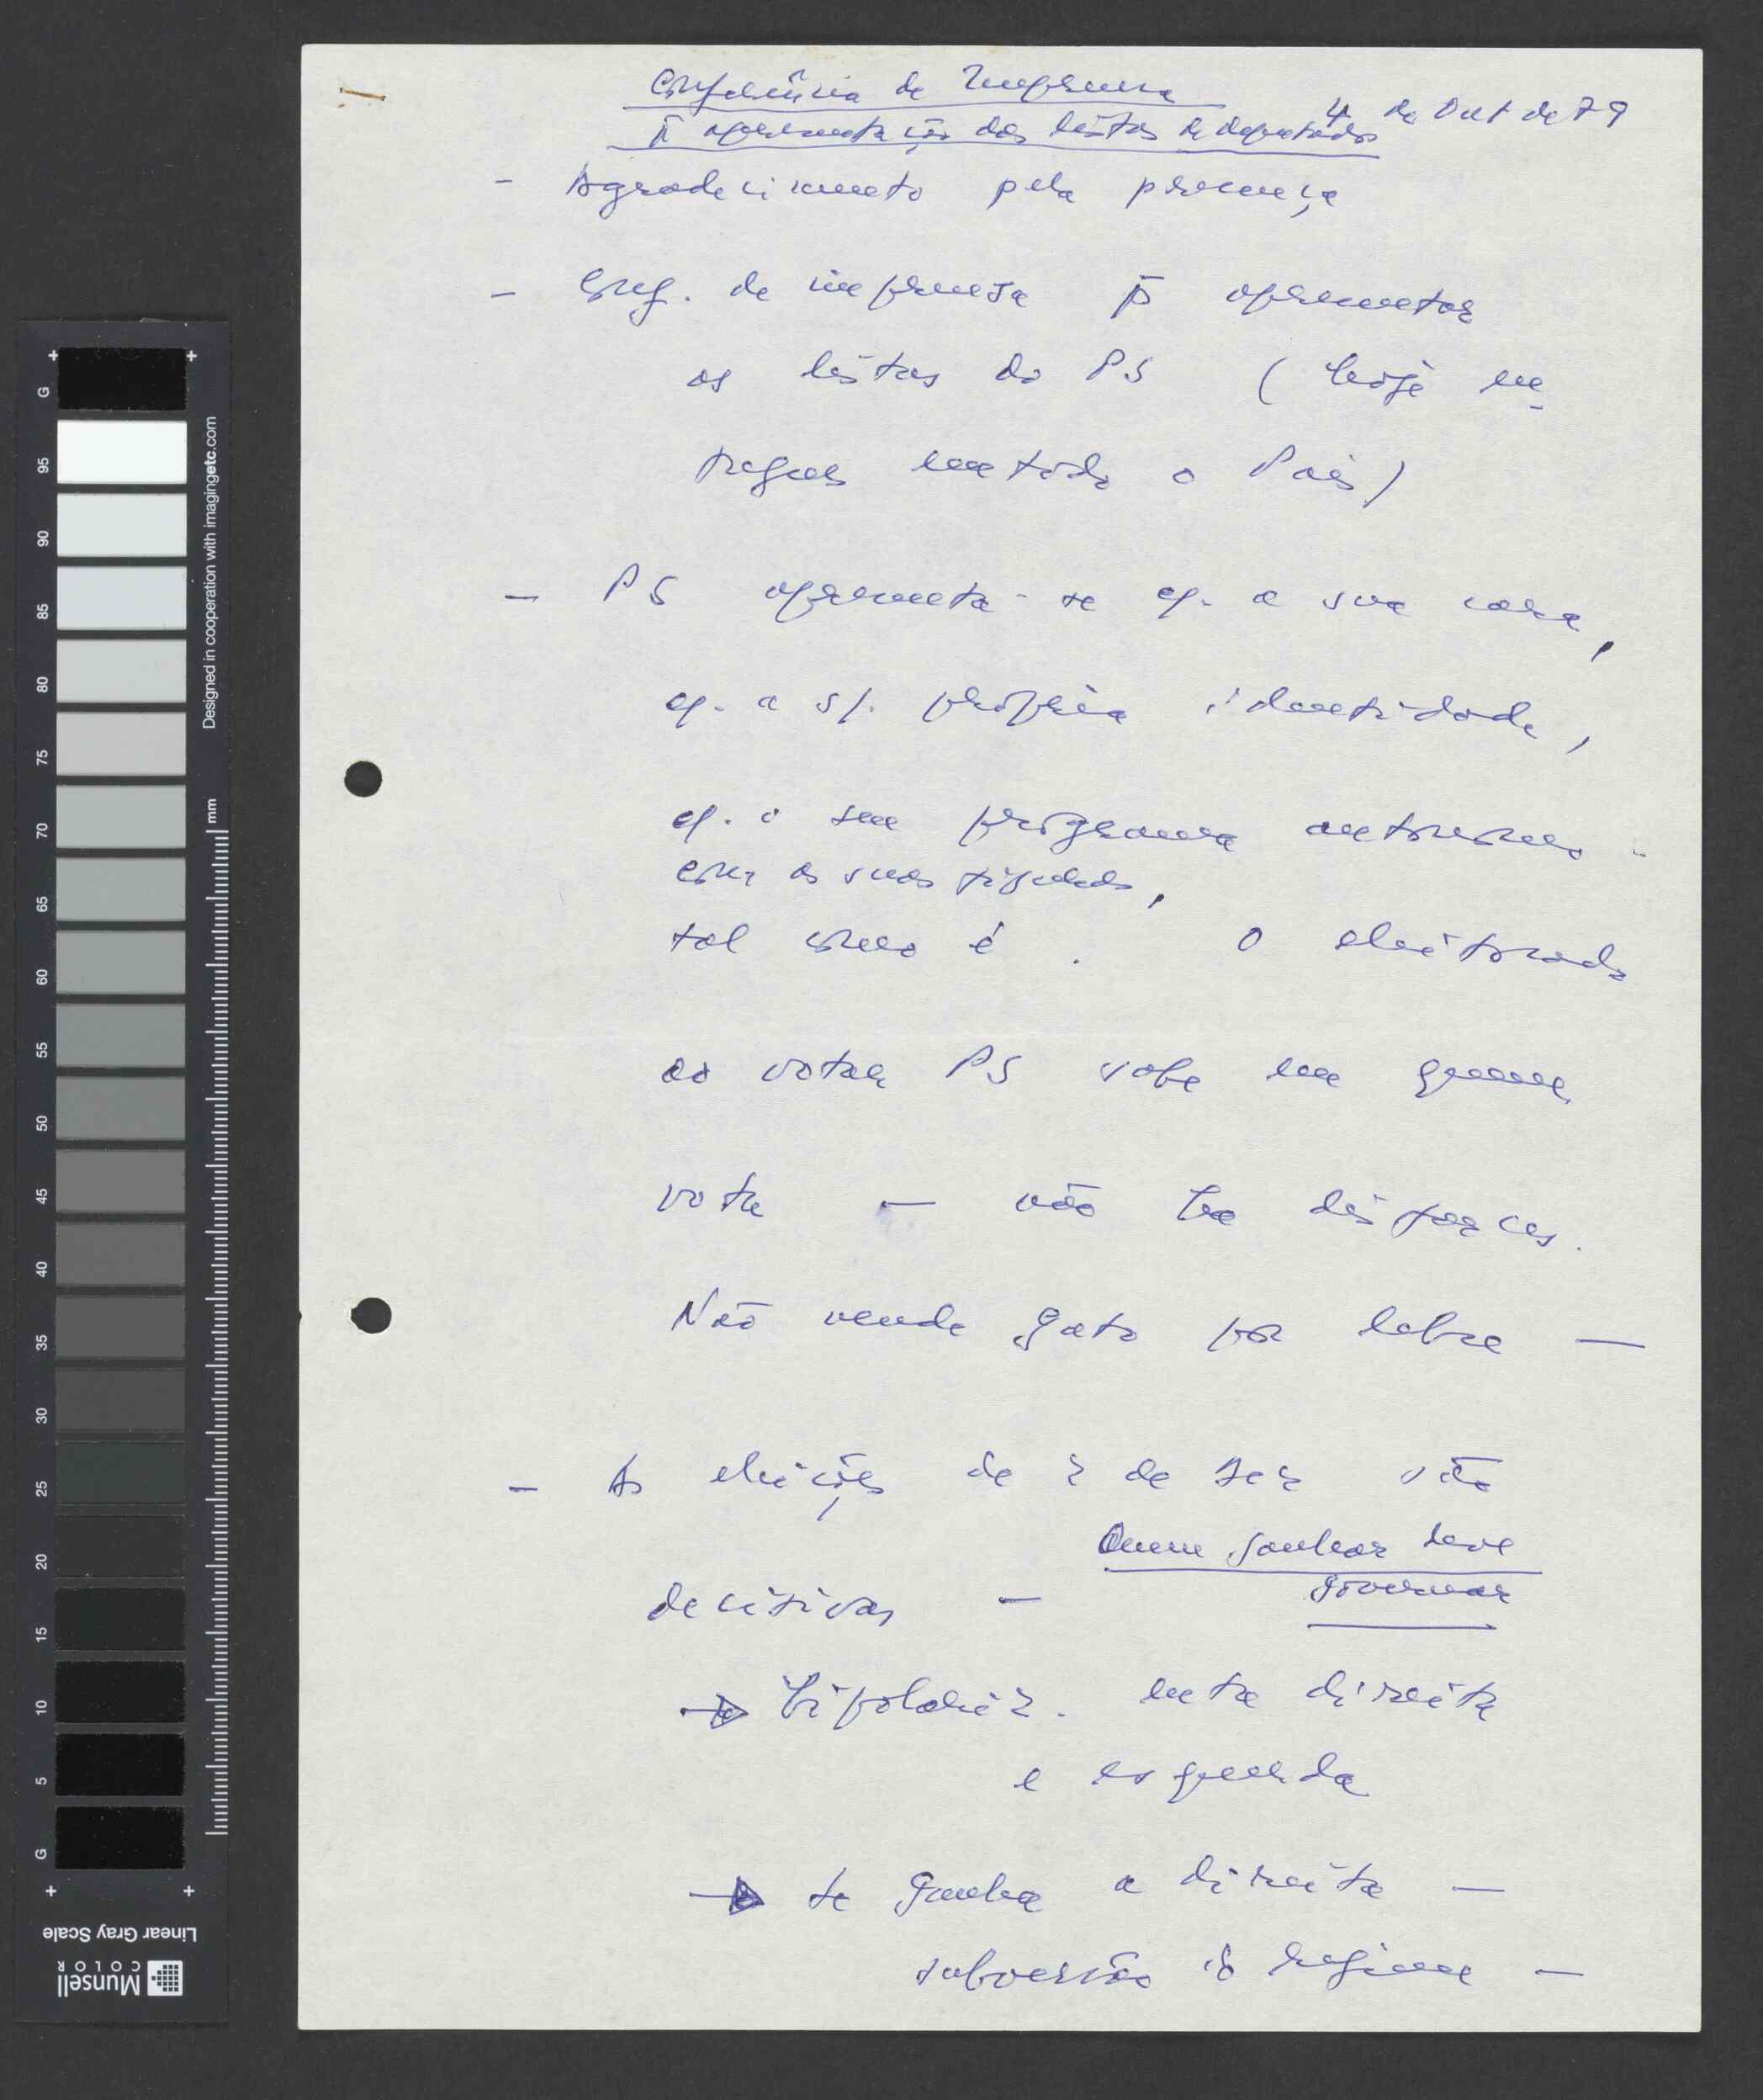 Conferência de Imprensa
p̄ apresentação das listas de deputados
4 de Out de 79
- Agradecimento pela presença
- Conf. de imprensa p̄ apresentar
as listas do PS (hoje en-
tregues em todo o País)
- PS apresenta-se c/. a sua cara,
c/. a s/. própria identidade,
c/. o seu programa autónomo -
com as suas figuras,
tal como é. O eleitorado
ao votar PS sabe em quem
vota — não há disfarces.
Não vende gato por lebre —
- As eleições de 2 de Dez são
Quem ganhar deve
governar
decisivas —
→ bipolariz. entre direita
e esquerda
→ se ganha a direita —
subversão do regime —
G
95
90
85
80
75
70
65
60
55
50
45
40
35
30
25
20
15
10
5
G
mm
Designed in cooperation with imagingetc.com
Linear Gray Scale
Munsell
COLOR